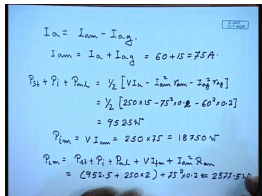 Ia = Iam - Iag
Iam = Ia + Iag = 60+15 = 75A.
Pst + Pi + PmL = 1/2 [VIa - I²am ram - I²ag rag]
= 1/2 [250×15 - 75²×0.2 - 60²×0.2]
= 952.5W
Pim = V Iam = 250×75 = 18750W
PLm = Pst + Pi + PmL + VIfm + I²am Ram
= (952.5 + 250×2) + 75²×0.2 = 2577.5W